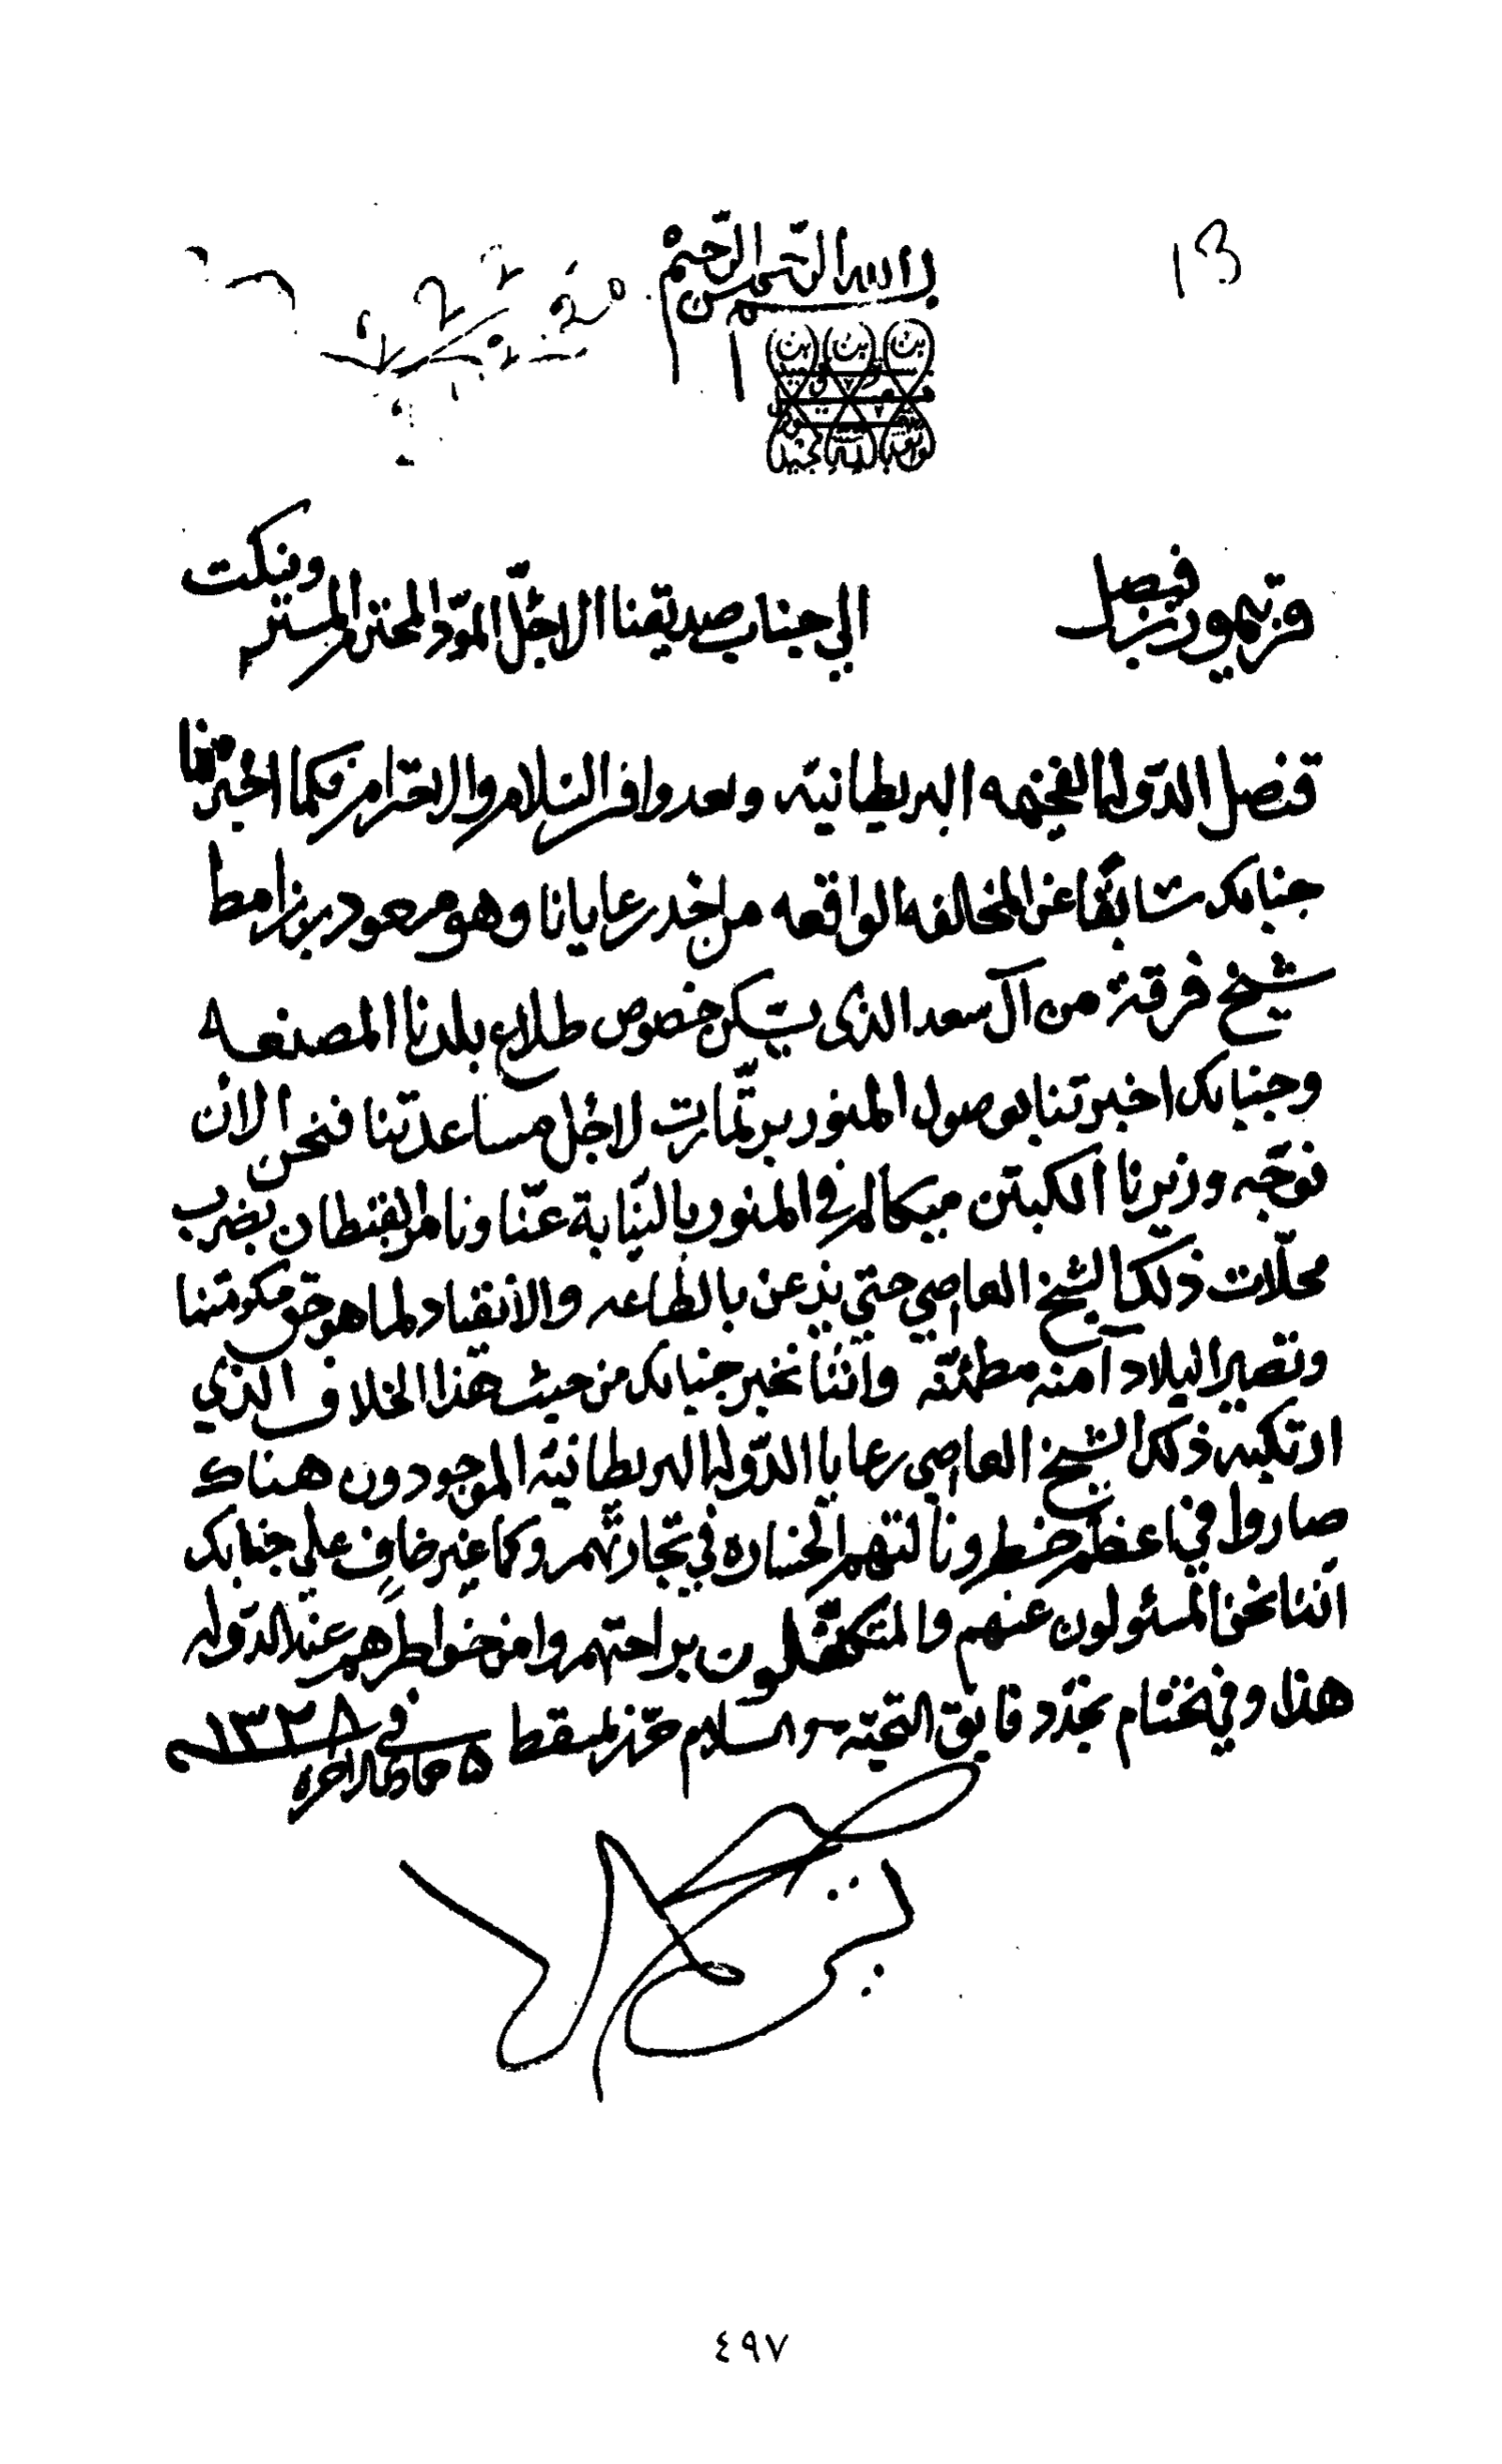 بسم الله الرحمن الرحيم
من تيمور بن فيصل
الى جناب صديقنا الاجلّ المودّ المحترم المستر ونكت
قنصل الدّولة الفخيمه البريطانية وبعد وافر السلام والاحترام فكما اخبرتنا
جنابك سابقًا عن المخالفه الواقعه من احد رعايانا وهو
شيخ فرقة من آل سعد الذى يسكن خصوص طلاع بلدنا المصنعه
وجنابك اخبرتنا بوصول المنور لاجل مساعدتنا فنحن الان
نوجّه وزيرنا الكبتن ميكالم في المنور بالنيّابة عنّا ونامر القبطان بضرب
محلّات ذلك الشيخ العاصي حتى يذعن بالطاعه والانقياد لما هو حق حكومتنا
وتصير البلاد آمنه مطمئنّه واننّا نخبر جنابك من حيث هذا الخلاف الذي
ارتكبه ذلك الشيخ العاصي رعايا الدّولة البريطانية الموجودون هناك
صاروا في اعظم خطر ونالتهم الخساره في تجارتهم وكما غير خافٍ على جنابك
اننا نحن المسئولون عنهم والمتكفّلون براحتهم وامن خواطرهم عند الدّوله
هذا وفي الختام نجدّد فايق التحيّه والسّلام حرّر بمسقط في ٥ جمادى الاخره ١٣٣٨
٤٩٧